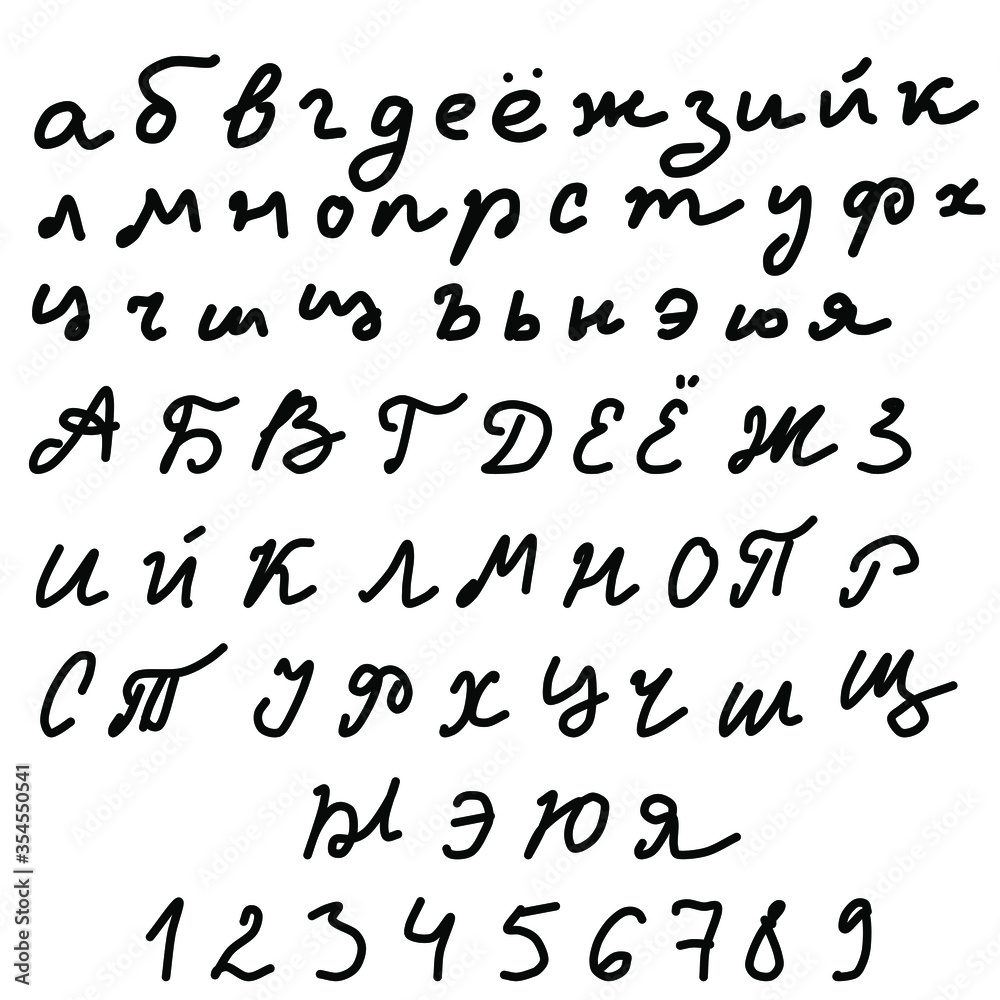 а б в г д е ё ж з и й к
л м н о п р с т у ф х
ц ч ш щ ъ ь н э ю я
А Б В Г Д Е Ё Ж З
И Й К Л М Н О П Р
С Т У Ф Х Ц Ч Ш Щ
Ы Э Ю Я
1 2 3 4 5 6 7 8 9
Adobe Stock | #354550541